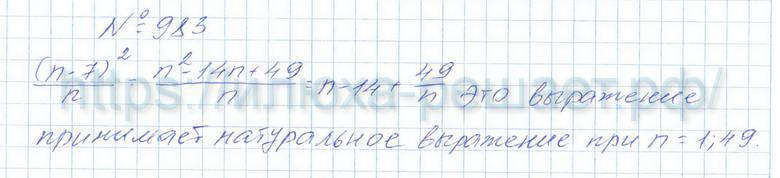 № 983
(n-7)²/n = n²-14n+49/n = n-14+49/n Это выражение
принимает натуральное выражение при n=1; 49.
https://илюха-решает.рф/